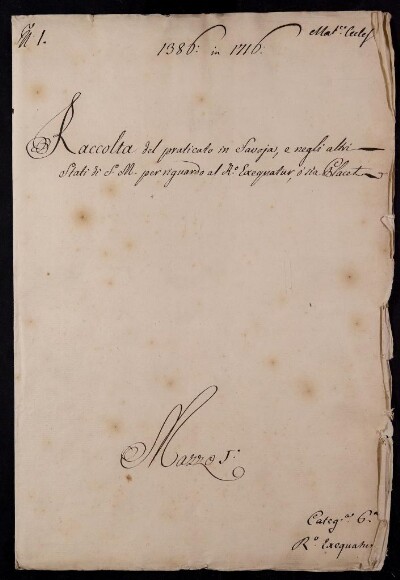 N. 1.
Mat.e Eccles
1386: in 1716:
Raccolta del praticato in Savoja, e negli altri
Stati di S. M. per riguardo al R.o Exequatur, o sia Placet
Mazzo 1.o
Categ.a 6.a
R.o Exequatur